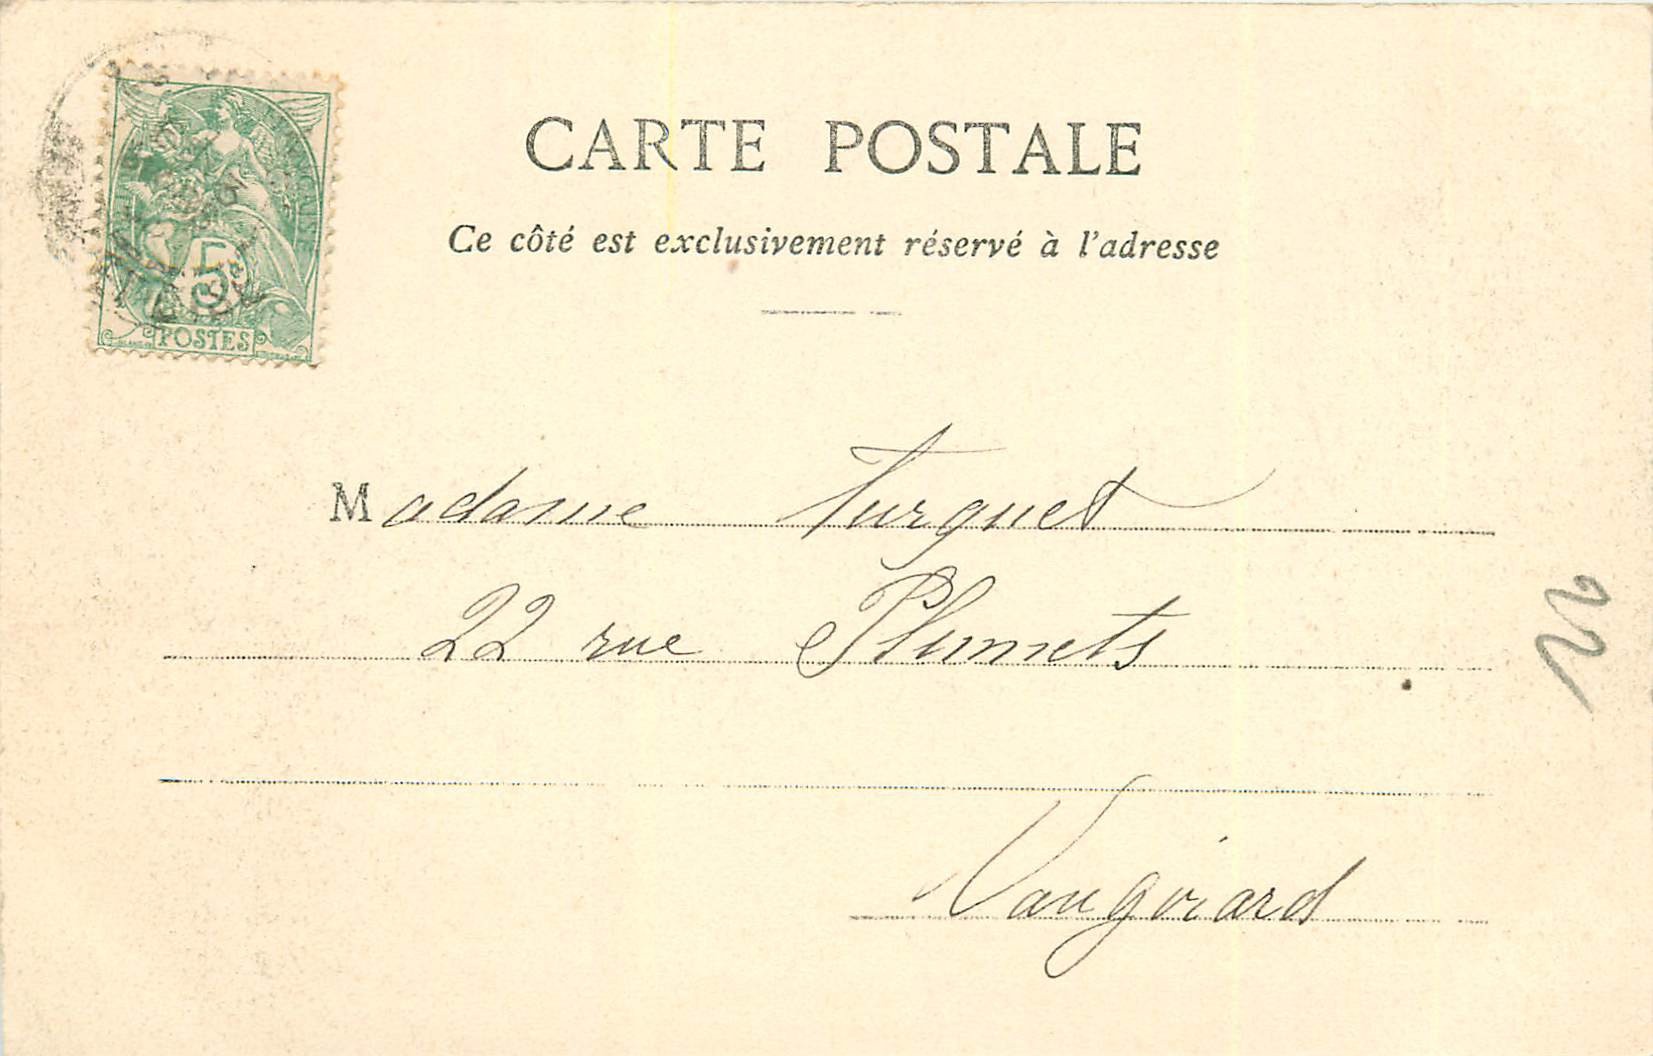 CARTE POSTALE
Ce côté est exclusivement réservé à l'adresse
5
POSTES
Madame Turquet
22 rue Plumets
Vaugirard